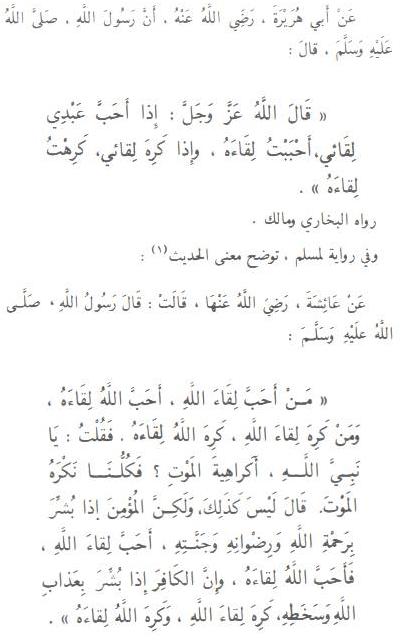 عَنْ أَبِي هُرَيْرَةَ ، رَضِيَ اللَّهُ عَنْهُ ، أَنَّ رَسُولَ اللَّهِ ، صَلَّى اللَّهُ
عَلَيْهِ وَسَلَّمَ ، قالَ :
« قَالَ اللَّهُ عَزَّ وَجَلَّ : إِذا أَحَبَّ عَبْدِي
لِقَائِي، أَحْبَبْتُ لِقَاءَهُ ، وإِذا كَرِهَ لِقائي، كَرِهْتُ
لِقاءَهُ » .
رواه البخاري ومالك .
وفي رواية لمسلم ، توضح معنى الحديث(١) :
عَنْ عَائِشَةَ ، رَضِيَ اللَّهُ عَنْهَا ، قَالَتْ : قَالَ رَسُولُ اللَّهِ ، صَلَّى
اللَّهُ عَلَيْهِ وَسَلَّمَ :
« مَنْ أَحَبَّ لِقَاءَ اللَّهِ ، أَحَبَّ اللَّهُ لِقَاءَهُ ،
وَمَنْ كَرِهَ لِقاءَ اللَّهِ ، كَرِهَ اللَّهُ لِقَاءَهُ . فَقُلْتُ : يَا
نَبِيَّ اللَّهِ ، أَكَراهِيةَ المَوْتِ ؟ فَكُلُّنَا نَكْرَهُ
المَوْتَ. قَالَ لَيْسَ كَذَلِكَ، وَلَكِنَّ المُؤْمِنَ إذا بُشِّرَ
بِرَحْمَةِ اللَّهِ وَرِضْوانِهِ وَجَنَّتِهِ ، أَحَبَّ لِقاءَ اللَّهِ ،
فَأَحَبَّ اللَّهُ لِقَاءَهُ ، وَإِنَّ الكَافِرَ إِذا بُشِّرَ بِعَذابِ
اللَّهِ وَسَخَطِهِ، كَرِهَ لِقاءَ اللَّهِ ، وَكَرِهَ اللَّهُ لِقَاءَهُ » .